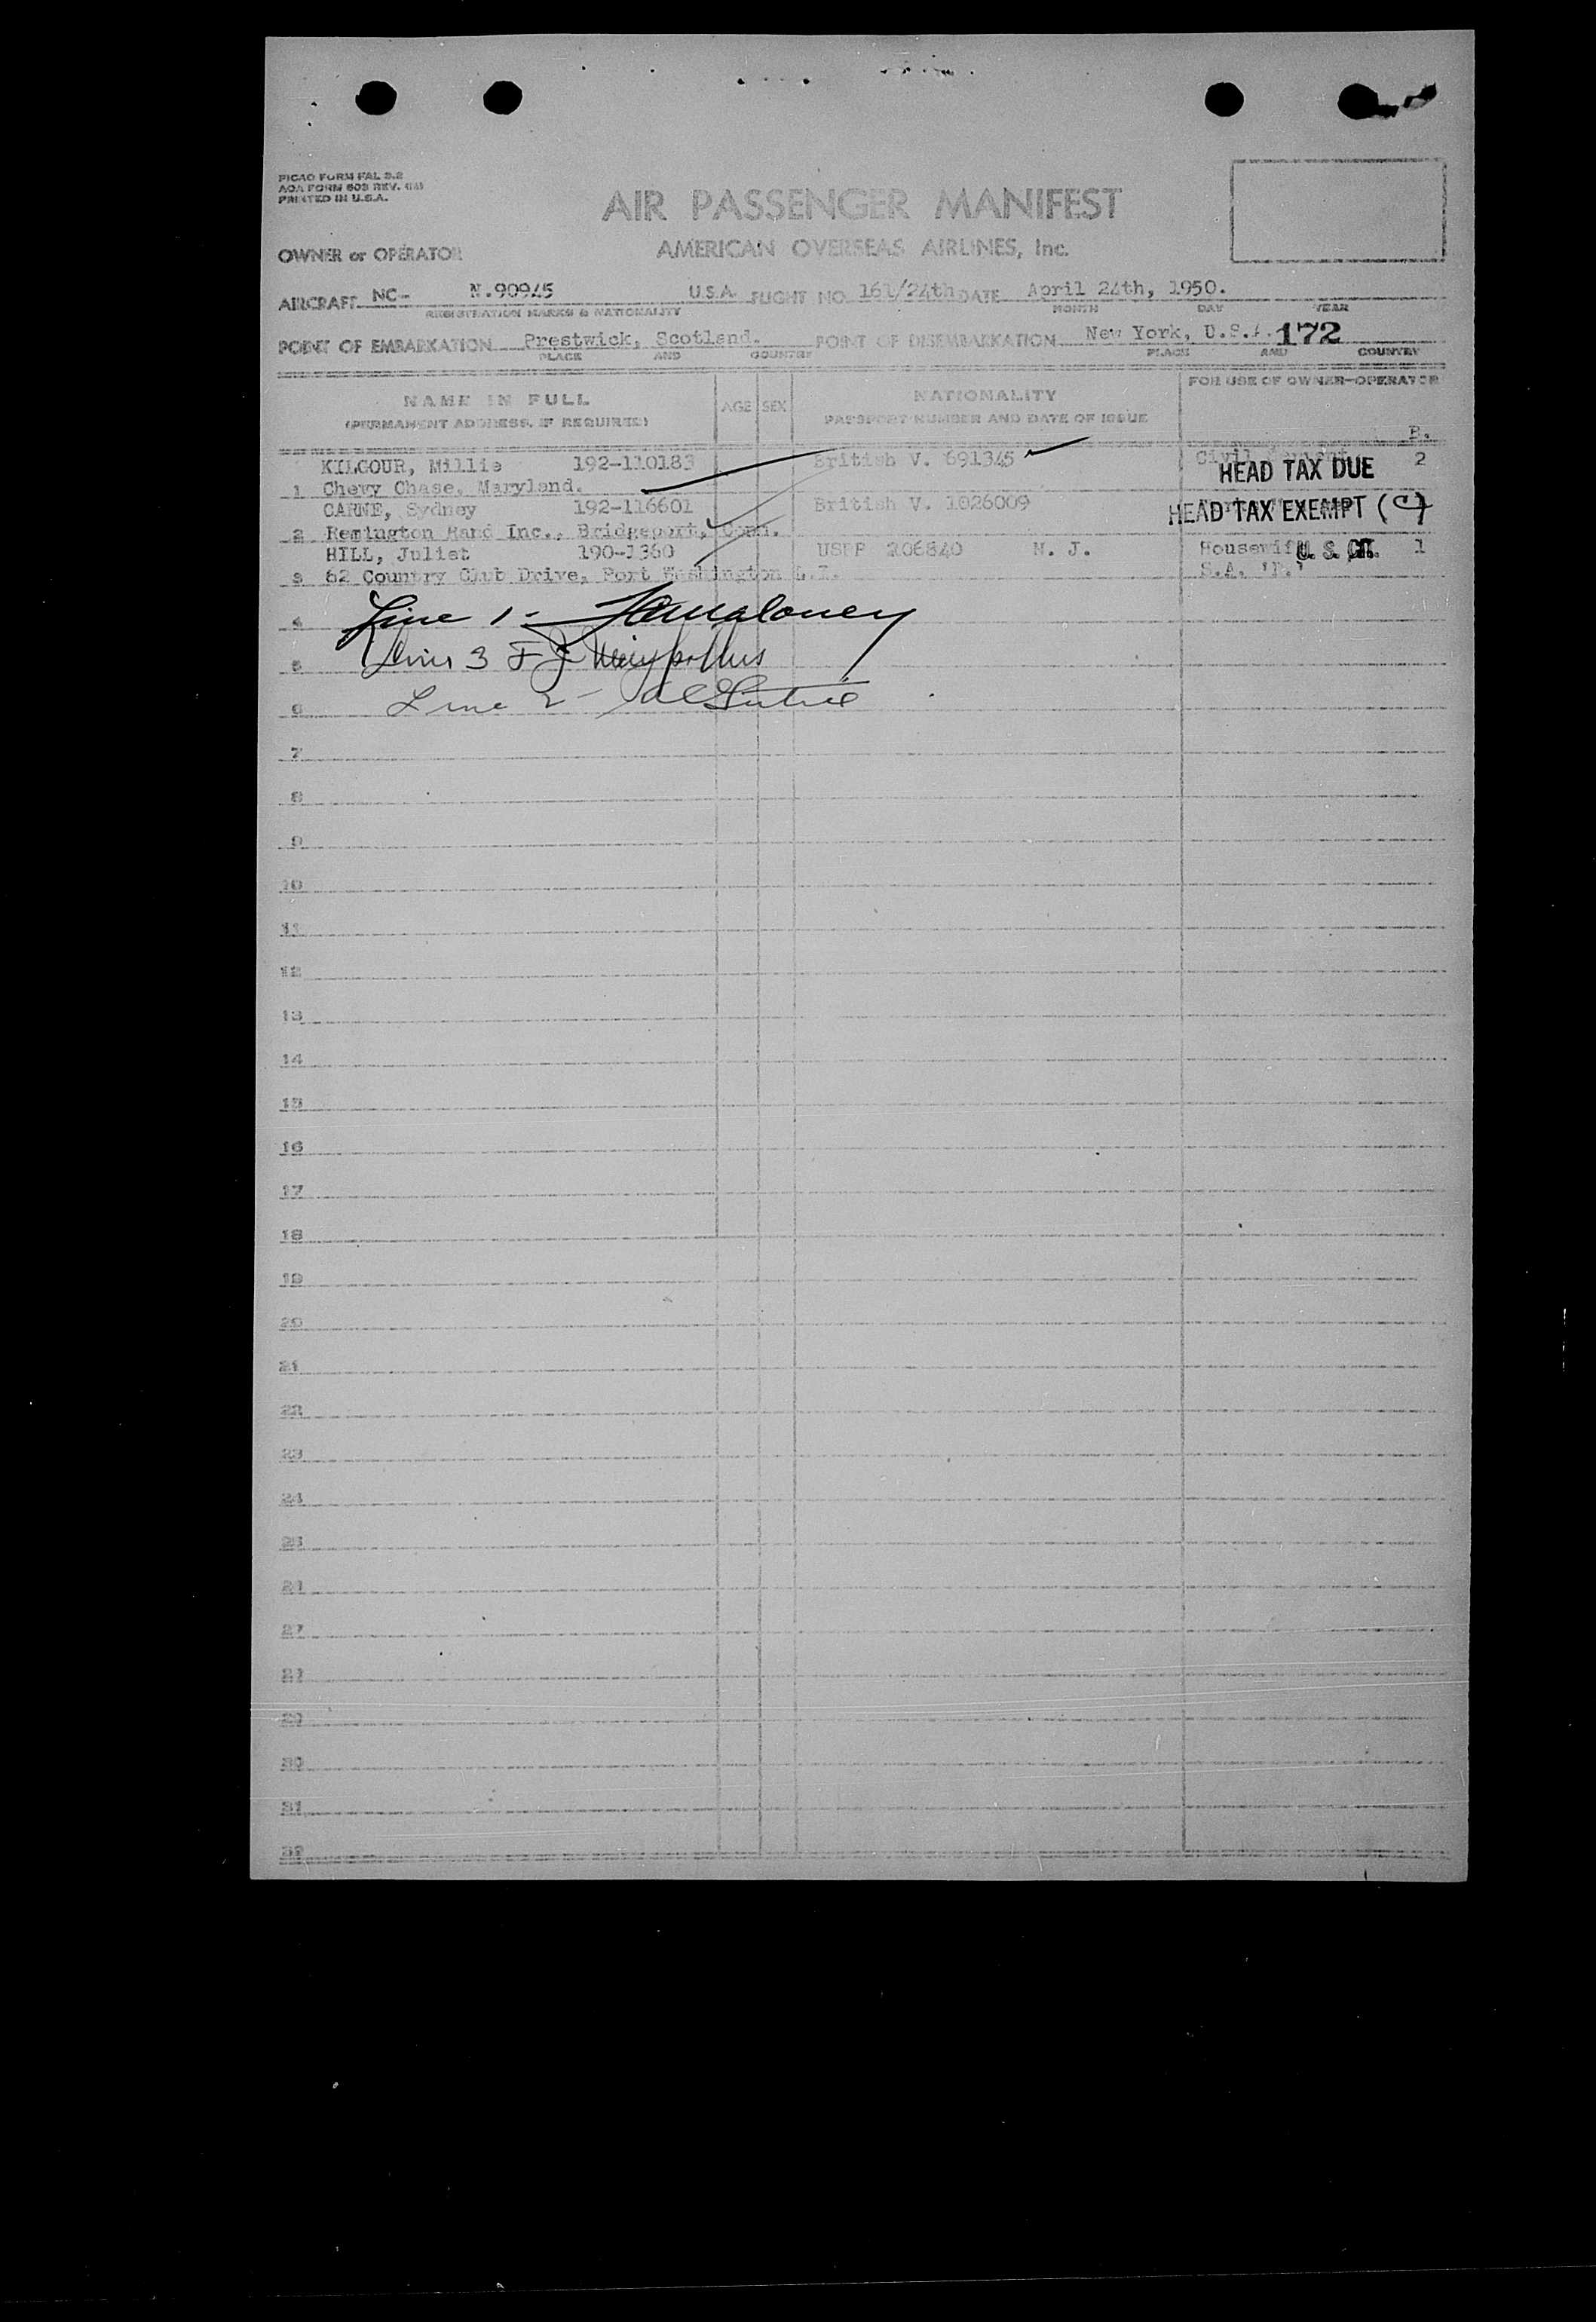 PICAO FORM FAL 3.2
AOA FORM 603 REV.
PRINTED IN U.S.A.
AIR PASSENGER MANIFEST
OWNER or OPERATOR AMERICAN OVERSEAS AIRLINES, Inc.
AIRCRAFT NC- N.90945 U.S.A. FLIGHT NO. 161/24th DATE April 24th, 1950.
REGISTRATION MARKS & NATIONALITY MONTH DAY YEAR
POINT OF EMBARKATION Prestwick, Scotland. POINT OF DISEMBARKATION New York, U.S.A. 172
PLACE AND COUNTRY PLACE AND COUNTRY
NAME IN FULL AGE SEX NATIONALITY FOR USE OF OWNER-OPERATOR
(PERMANENT ADDRESS, IF REQUIRED) PASSPORT NUMBER AND DATE OF ISSUE
B.
KILGOUR, Millie 192-110183 British V. 691345 Civil Servant 2
HEAD TAX DUE
1 Chevy Chase, Maryland.
CARNE, Sydney 192-116601 British V. 1026009 HEAD TAX EXEMPT (C)
2 Remington Rand Inc., Bridgeport, Conn.
HILL, Juliet 190-1360 USPP 206840 N. J. Housewife U. S. CIT. 1
3 62 Country Club Drive, Port Washington L.I. S.A. 'P.'
4 Line 1 - Maloney
5 Line 3 F J
6 Line 2 -
7
8
9
10
11
12
13
14
15
16
17
18
19
20
21
22
23
24
25
27
30
31
32